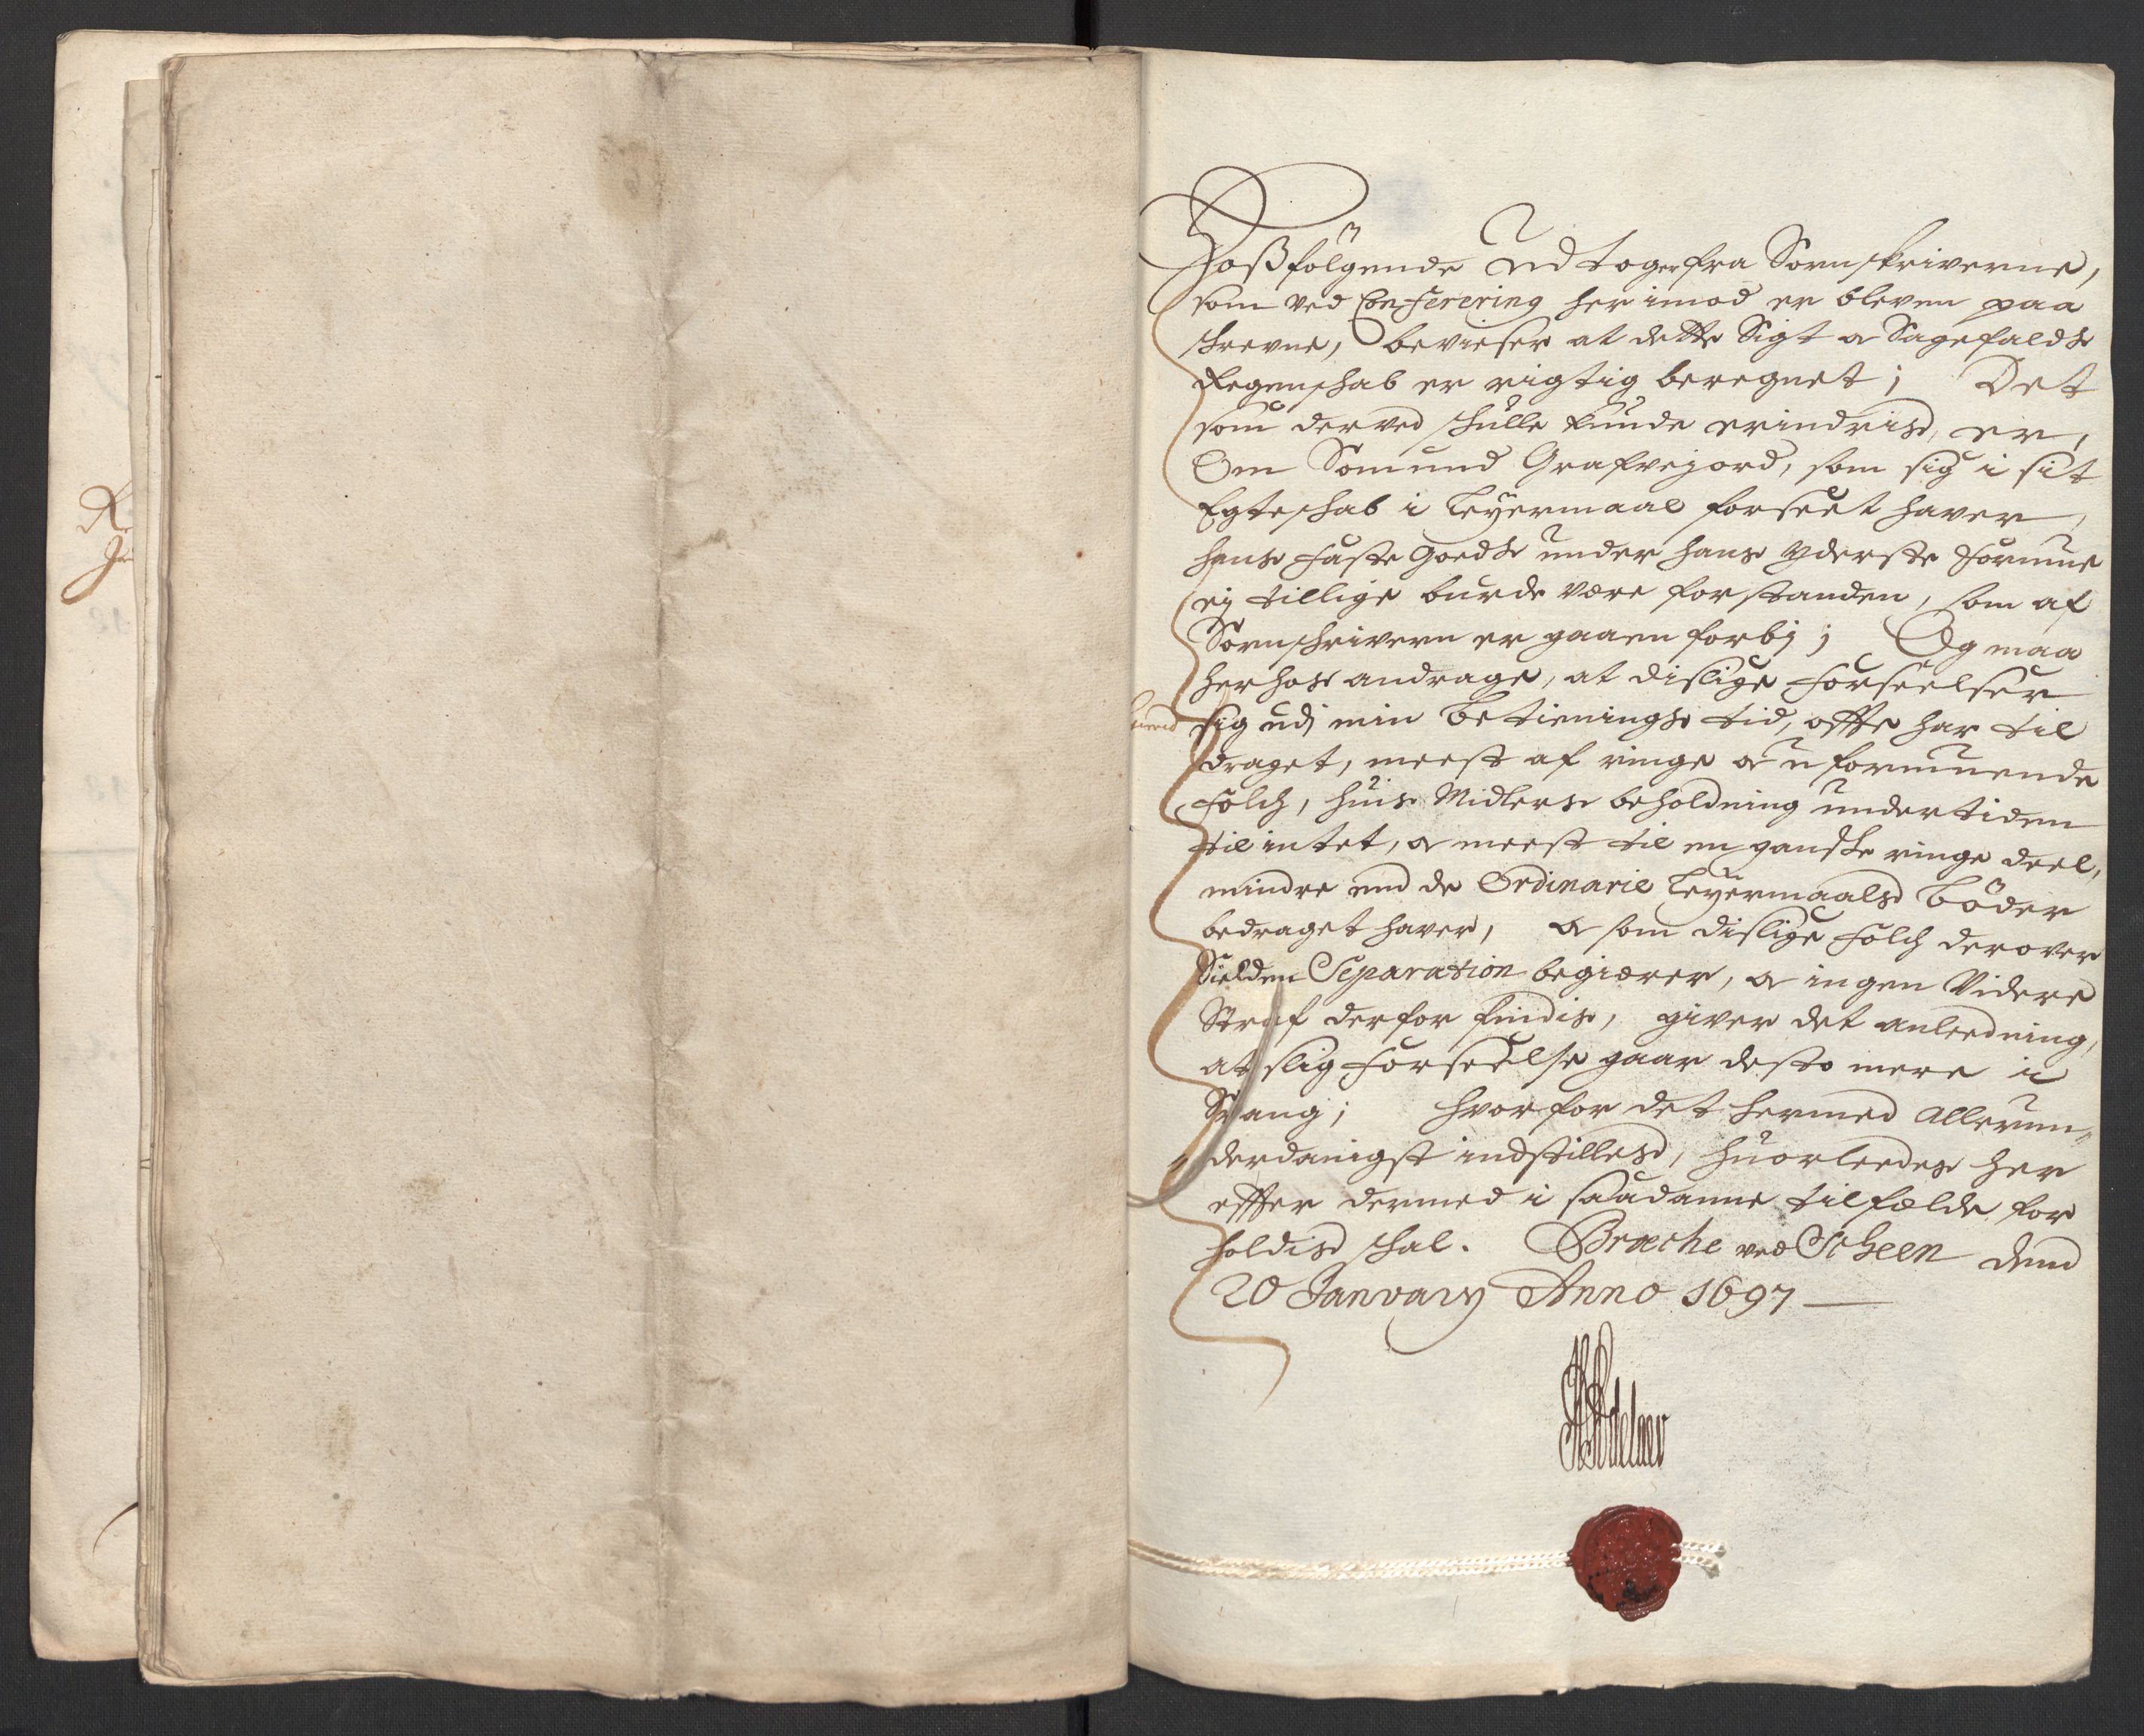 Hoßfölgende Udtoger fra Sornskriverne,
som ved Conferering her imod er bleven paa
skrevne, bevieser at dette Sigt a Sagefalds
Regenschab er rigtig beregnet; Det
som derved schulle kunde erindris, er,
Om Somund Grafvejord, som sig i sit
Egteschab i Leÿermaal forseet haver,
hans faste Goeds under hans yderste formue
ej tillige burde være forstanden, som af
Sornschrivern er gaaen forbj; Og maa
herhos andrage, at dislige forseelser
sig udj min Betienings tid, offte har til
draget, meest af ringe a uformuende
folch, huis Midlers beholdning undertiden
til intet, a meest til en ganske ringe deel,
mindre end de Ordinarie Leÿermaals Böder
bedraget haver, a som dislige folch derover
Sielden Separation begiærer, a ingen Videre
Straf derfor findis, giver det anleedning,
at slig forseelse gaar desto mere i
Svang; hvorfor det hermed Allerun-
derdanigst indstilles, huorleedes her
effter dermed i saadanne tilfælde for
holdis schal. Bræche ved Scheen dend
20 Janvarij Anno 1697
HAdelaer